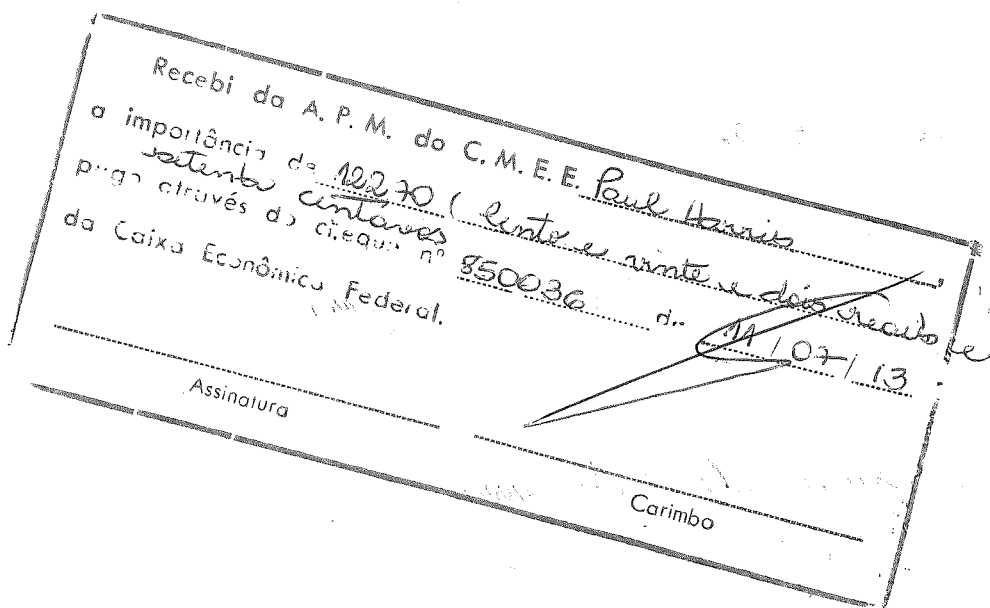 Recebi da A. P. M. do C. M. E. E. Paul Harris,
a importância de 12270 ( Cento e vinte e dois reais e
setenta centavos
pago através do cheque nº 850036 de 11 / 07 / 13
da Caixa Econômica Federal.
Assinatura
Carimbo